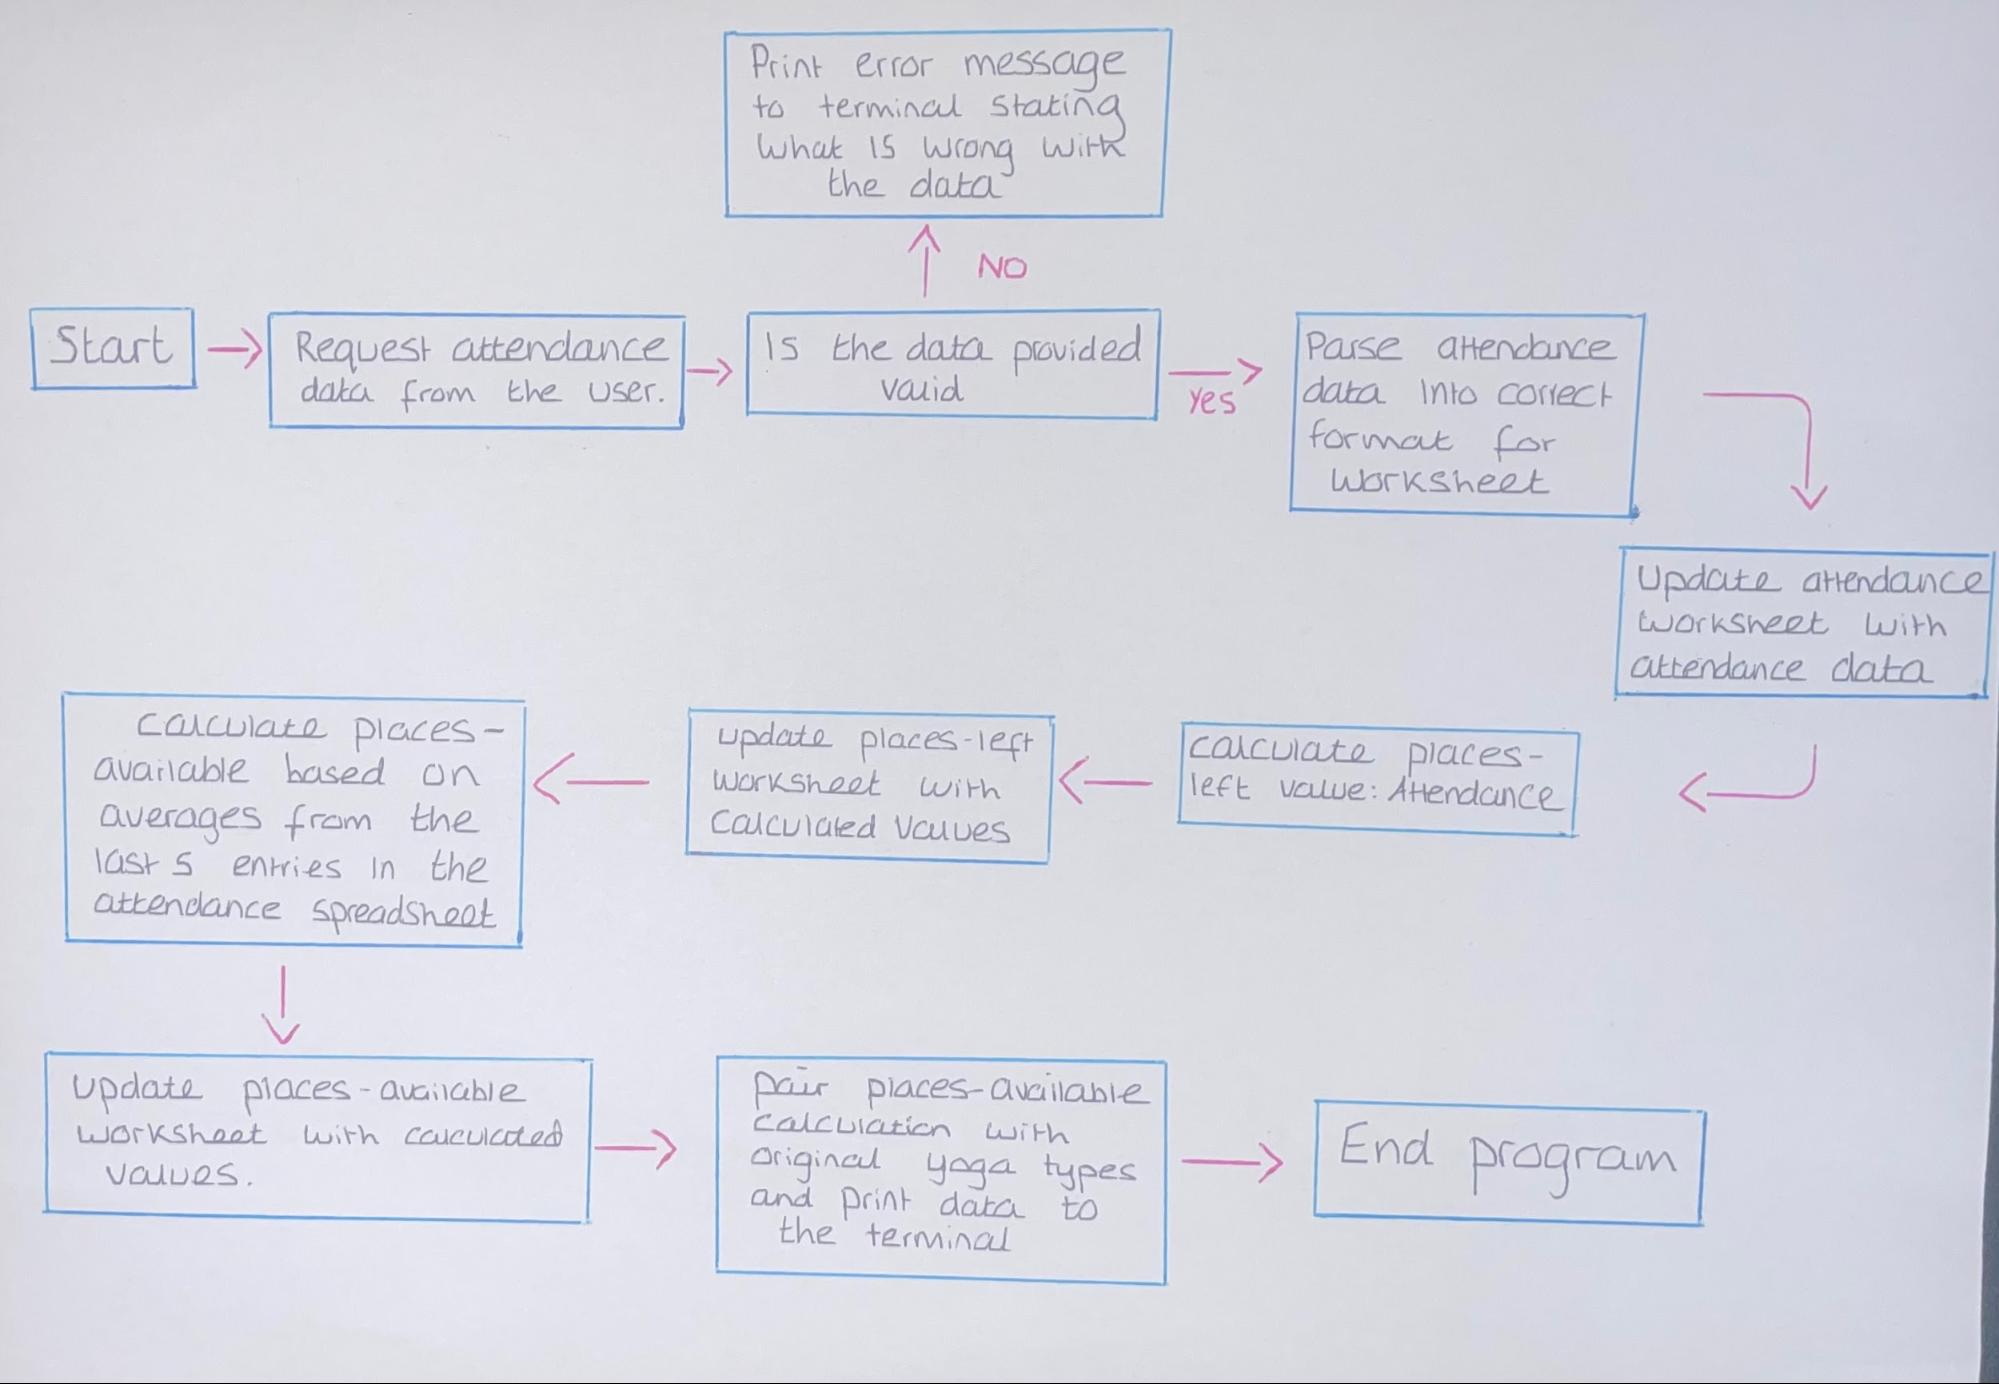 Print error message
to terminal stating
what is wrong with
the data
NO
Start
Request attendance
data from the user.
Is the data provided
valid
Yes
Parse attendance
data into correct
format for
worksheet
Update attendance
worksheet with
attendance data
calculate places-
left value: Attendance
update places-left
worksheet with
calculated values
calculate places-
available based on
averages from the
last 5 entries in the
attendance spreadsheet
update places-available
worksheet with calculated
values.
pair places-available
calculation with
original yoga types
and print data to
the terminal
End program